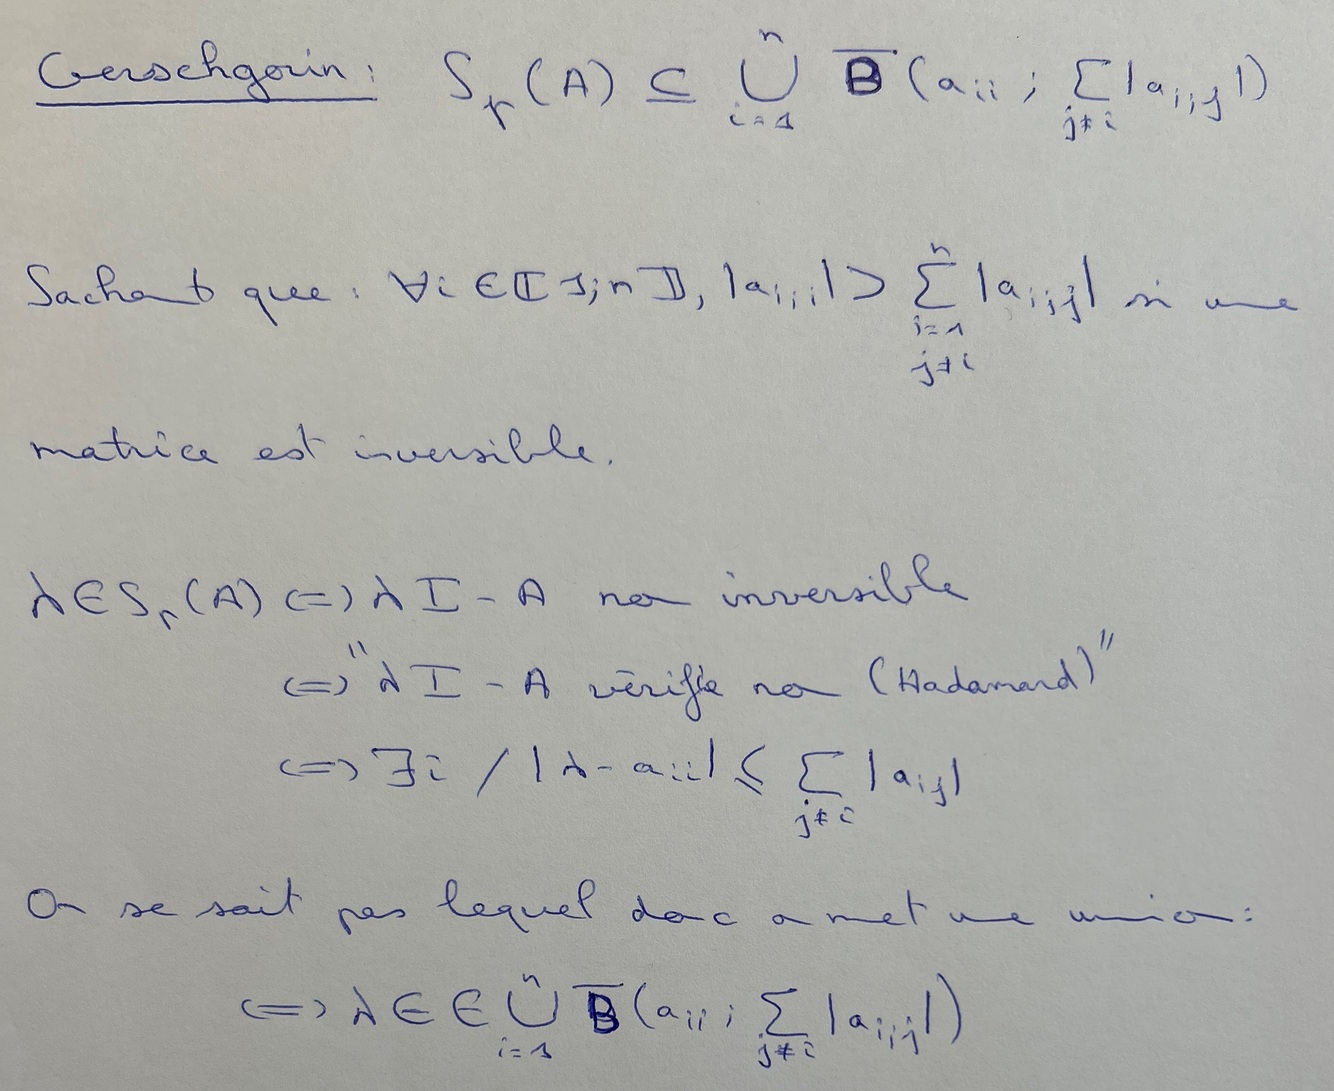 Gerschgorin : Sp(A) ⊆ ⋃_{i=1}^{n} B̅(a_{ii} ; ∑_{j≠i} |a_{i,j}|)
Sachant que : ∀i ∈ ⟦1;n⟧, |a_{i,i}| > ∑_{i=1, j≠i}^{n} |a_{i,j}| si une
matrice est inversible.
λ ∈ Sp(A) ⇔ λI - A non inversible
⇔ "λI - A vérifie non (Hadamard)"
⇔ ∃i / |λ - a_{ii}| ≤ ∑_{j≠i} |a_{ij}|
On se sait pas lequel donc on met une union :
⇔ λ ∈ ∈ ⋃_{i=1}^{n} B̅(a_{ii} ; ∑_{j≠i} |a_{i,j}|)